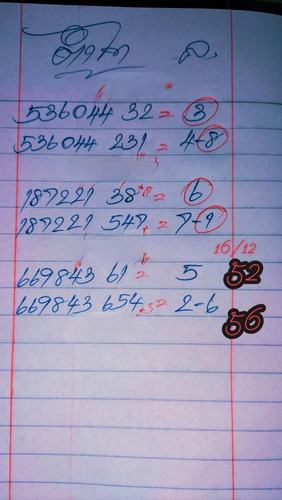 536044 32 = 3
536044 231 = 4-8
187221 38 = 6
187221 547 = 7-9
16/12
669843 61 = 5 52
669843 654 = 2-6
56